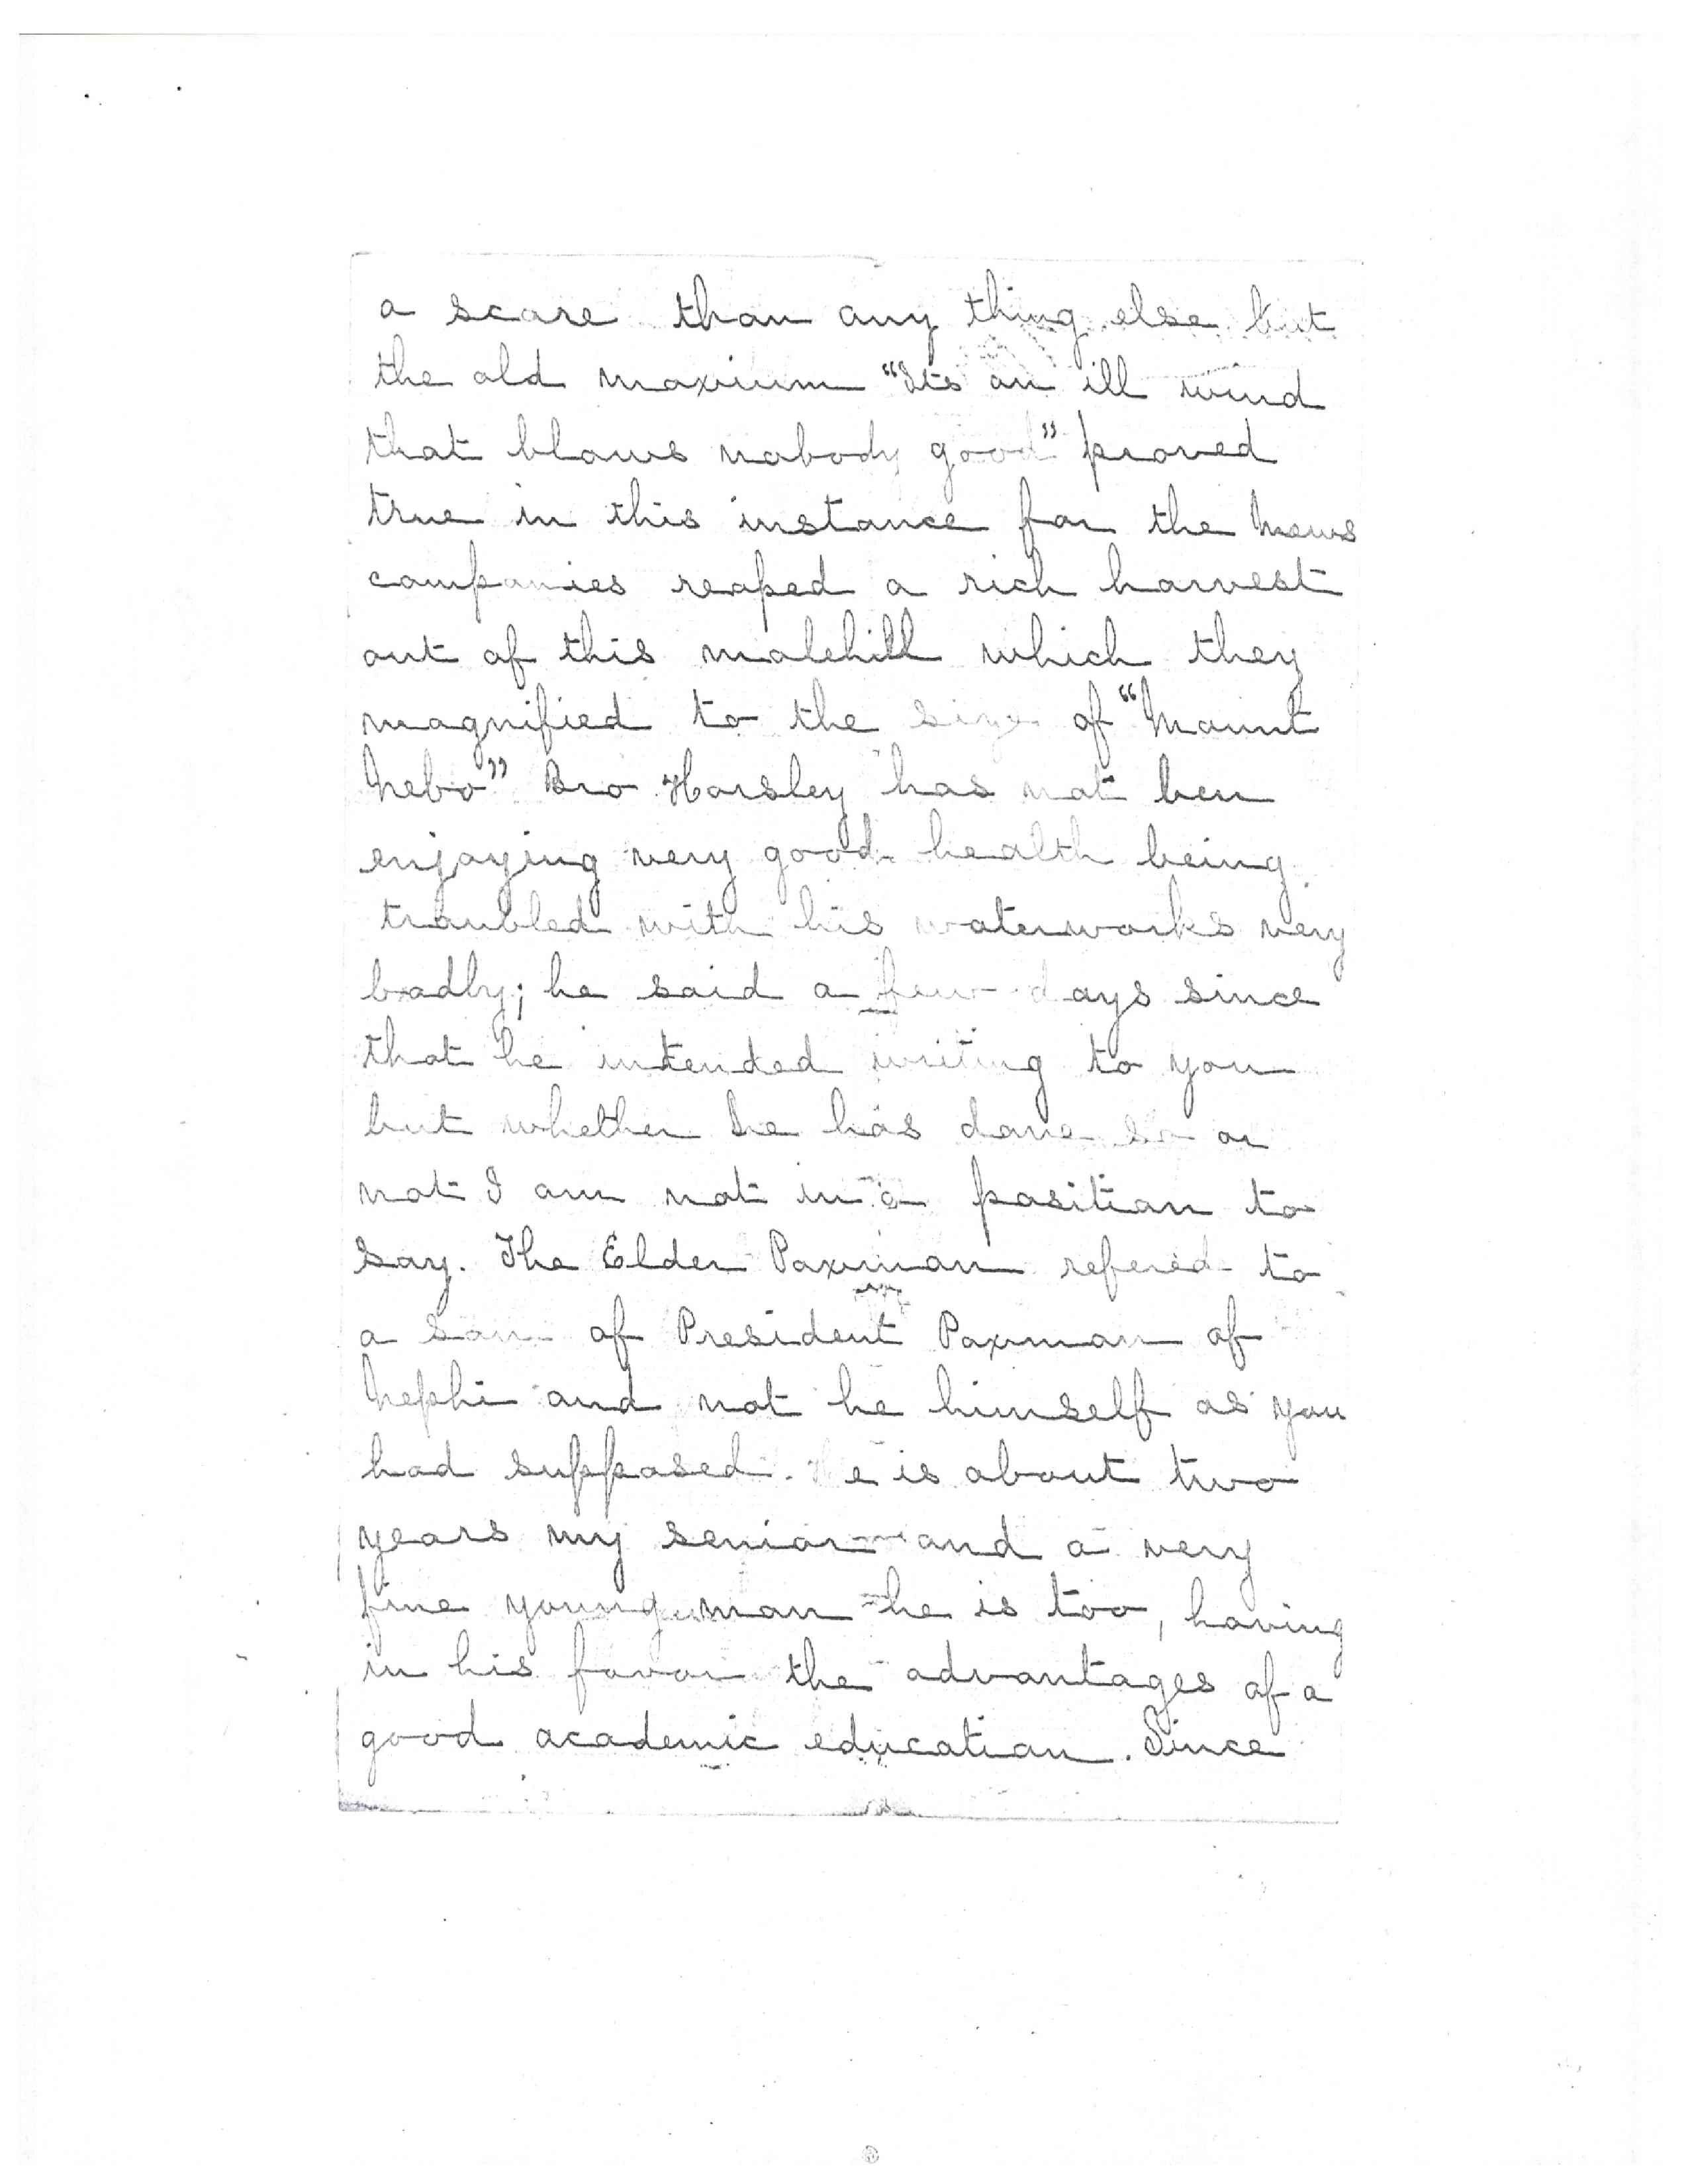 a scare than any thing else but
the old maxium "Its an ill wind
that blows nobody good" proved
true in this instance for the News
companies reaped a rich harvest
out of this molehill which they
magnified to the size of "Mount
Nebo" Bro Horsley has not ben
enjoying very good health being
troubled with his waterworks very
badly; he said a few days since
that he intended writing to you
but whether he has done so or
not I am not in a position to
say. The Elder Paxman refered to
a son of President Paxman of
Nephi and not he himself as you
had supposed. He is about two
years my senior and a very
fine young man he is too, having
in his favor the advantages of a
good academic education. Since